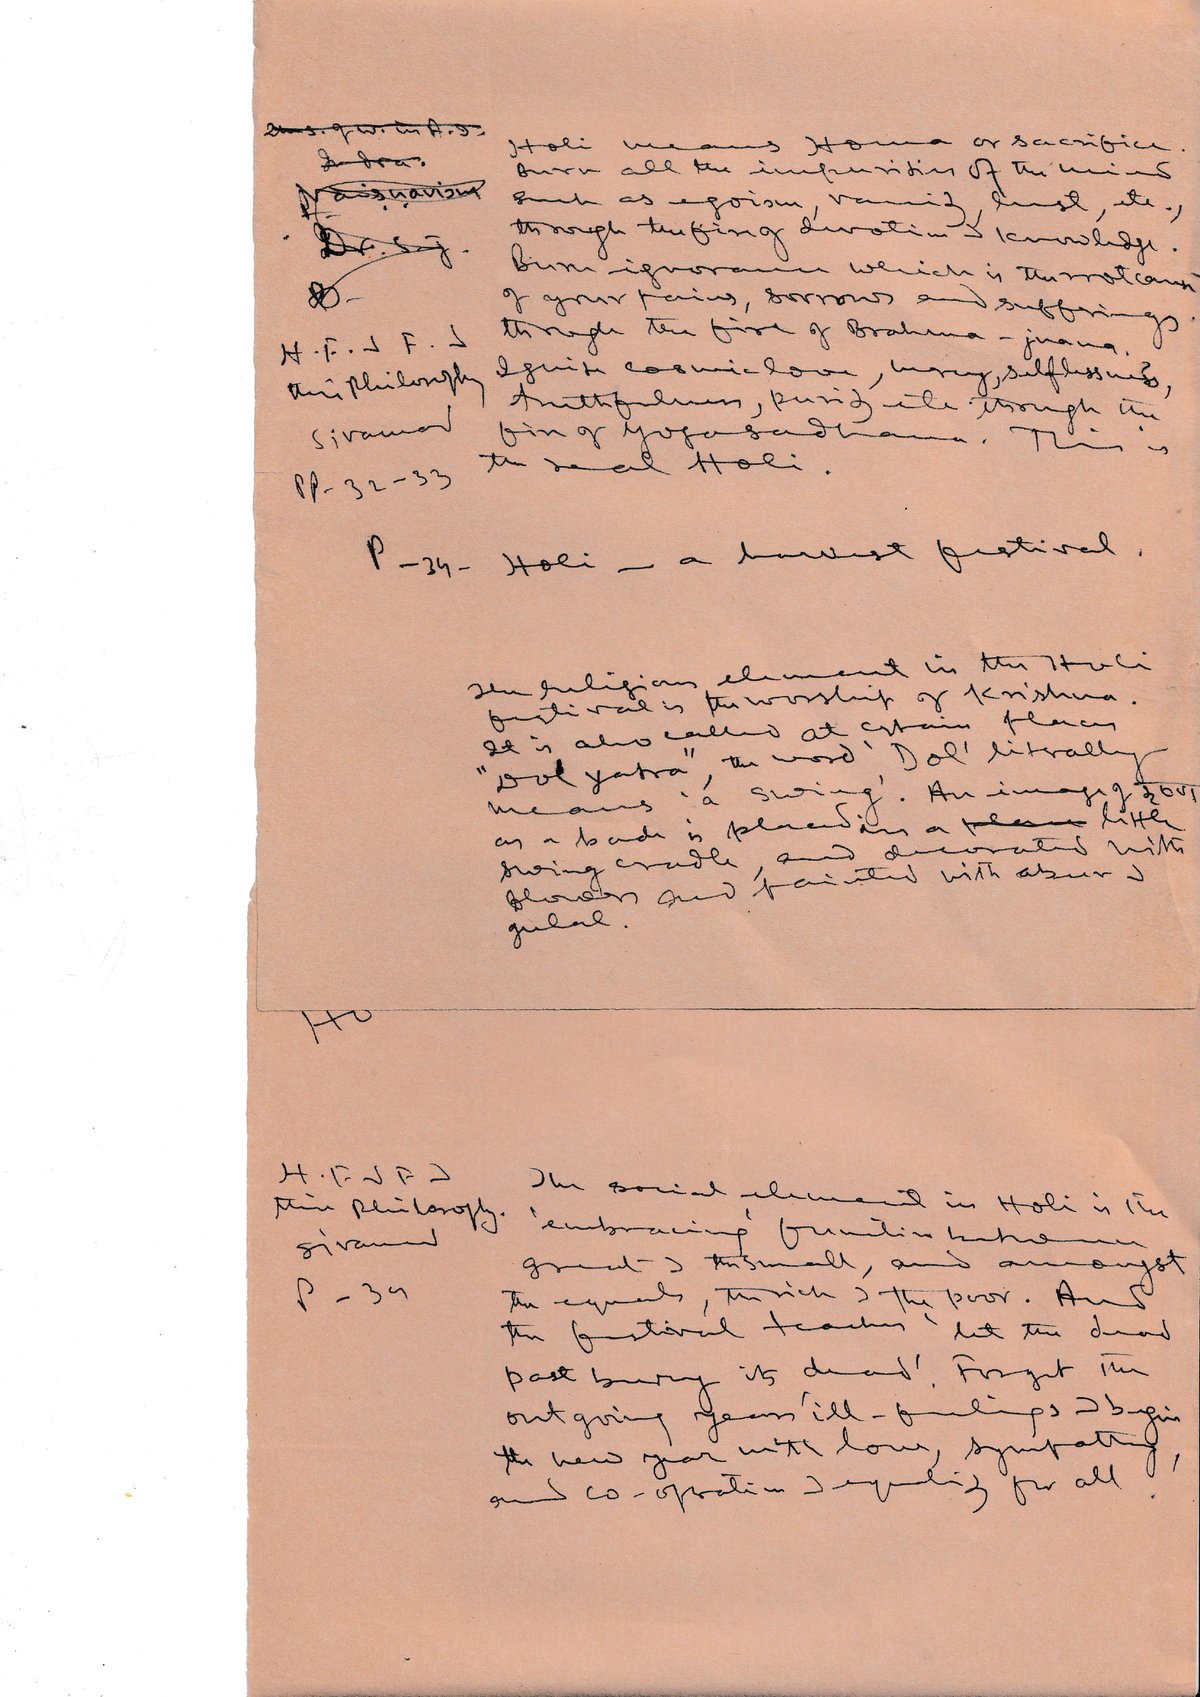 Indra.
Vaisnavism
P-
Dr. S.J.
P-
H. F. & F. &
their Philosophy
Sivanand
PP-32-33
Holi means Homa or sacrifice.
Burn all the impurities of the mind
such as egoism, vanity, lust, etc.,
through the fire of devotion & knowledge.
Burn ignorance which is the root cause
of your pains, sorrows and sufferings
through the fire of Brahma-jnana.
Ignite cosmic love, mercy, selflessness,
truthfulness, purity etc through the
fire of Yoga sadhana. This is
the real Holi.
P-34- Holi — a harvest festival.
The religious element in the Holi
festival is the worship of Krishna.
It is also called at certain places
"Dol yatra", the word 'Dol' literally
means 'a swing'. An image of
as a babe is placed in a place little
swing cradle, and decorated with
flowers and painted with abir &
gulal.
Ho
H. F. & F &
their Philosophy.
Sivanand
P-34
The social element in Holi is the
'embracing' function between
great & the small, and amongst
the equals, the rich & the poor. And
the festival teaches 'let the dead
past bury its dead'. Forget the
outgoing years' ill-feelings & begin
the new year with love, sympathy,
and co-opration & equality for all.